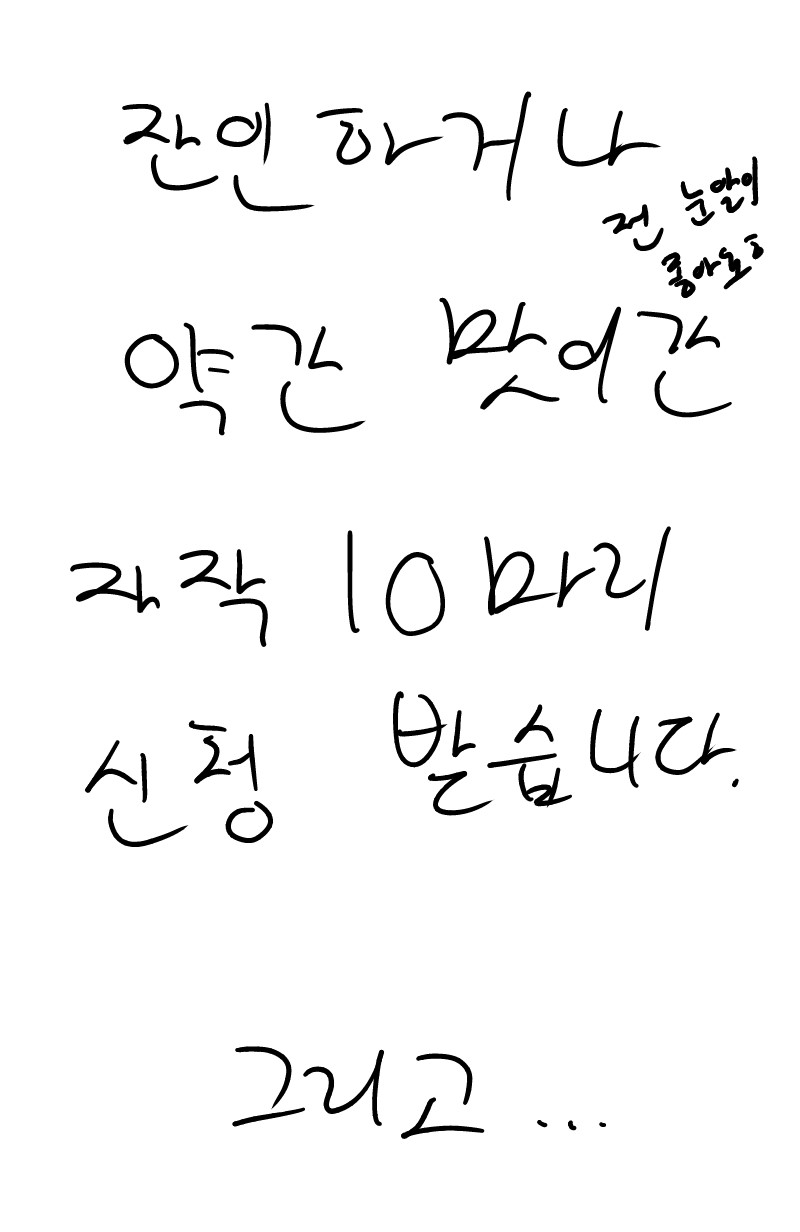 잔인하거나
전 눈알이
좋아요ㅎ
약간 맛이간
자작 10마리
신청 받습니다.
그리고...